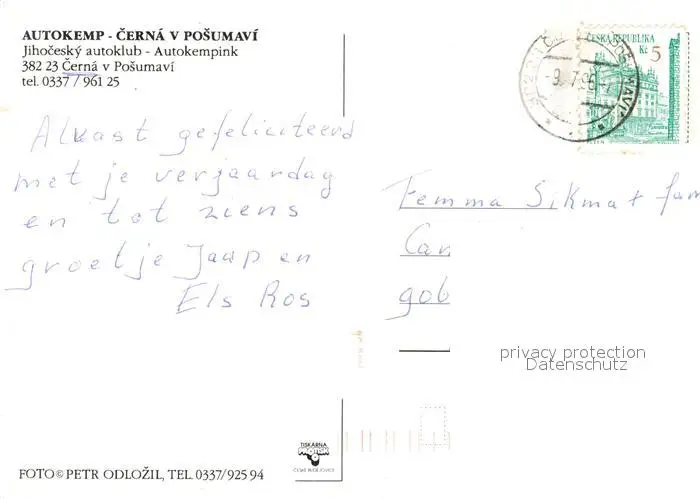 AUTOKEMP - ČERNÁ V POŠUMAVÍ
Jihočeský autoklub - Autokempink
382 23 Černá v Pošumaví
tel. 0337/961 25
Alvast gefeliciteerd
met je verjaardag
en tot ziens
groetje Jaap en
Els Ros
ČESKÁ REPUBLIKA
Kč 5
Femma Sikma + fam
Car
gob
privacy protection
Datenschutz
TISKÁRNA
ČESKÉ BUDĚJOVICE
FOTO © PETR ODLOŽIL, TEL. 0337/925 94